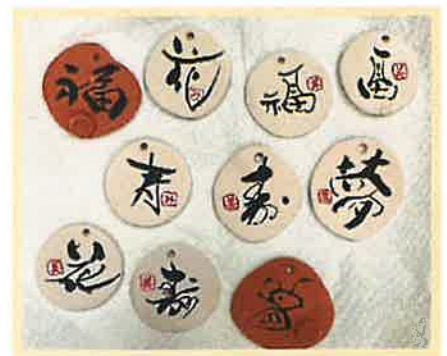 福 花 福
寿 寿 夢
花 寿